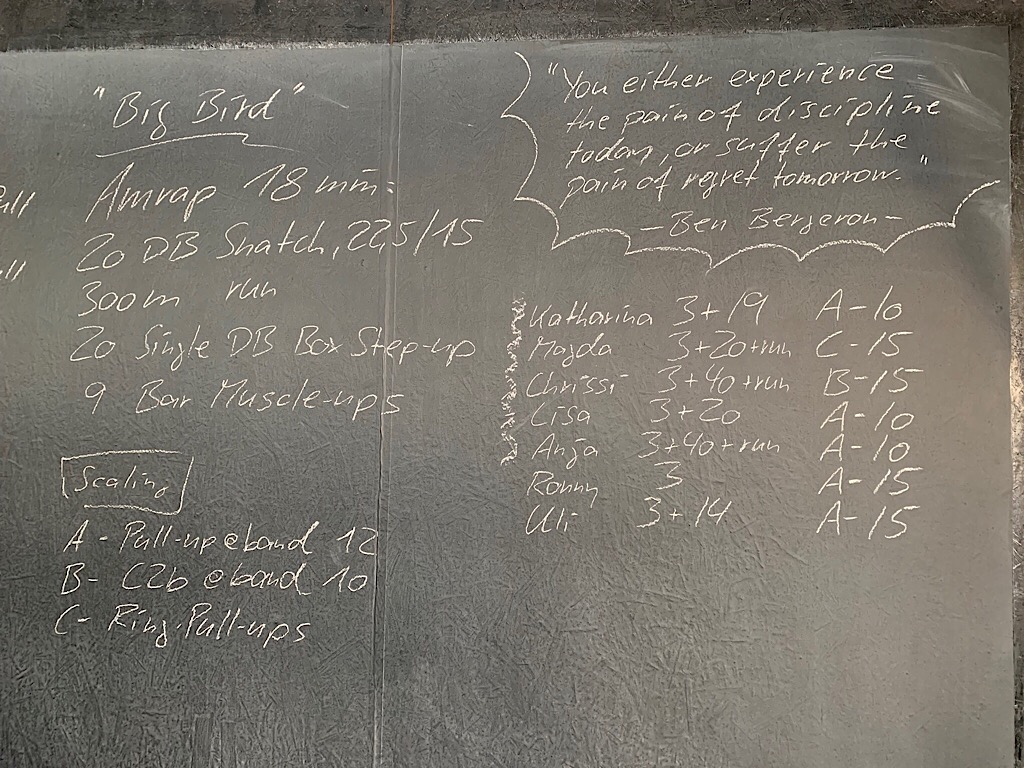 "Big Bird"
Amrap 18 min:
20 DB Snatch, 22,5/15
300m run
20 Single DB Box Step-up
9 Bar Muscle-ups
Scaling
A - Pull-up @ band 12
B - C2b @ band 10
C - Ring Pull-ups
"You either experience
the pain of discipline
today, or suffer the
pain of regret tomorrow."
- Ben Bergeron -
Katharina 3+19 A-10
Magda 3+20+run C-15
Chrissi 3+40+run B-15
Lisa 3+20 A-10
Anja 3+40+run A-10
Ronny 3 A-15
Uli 3+14 A-15